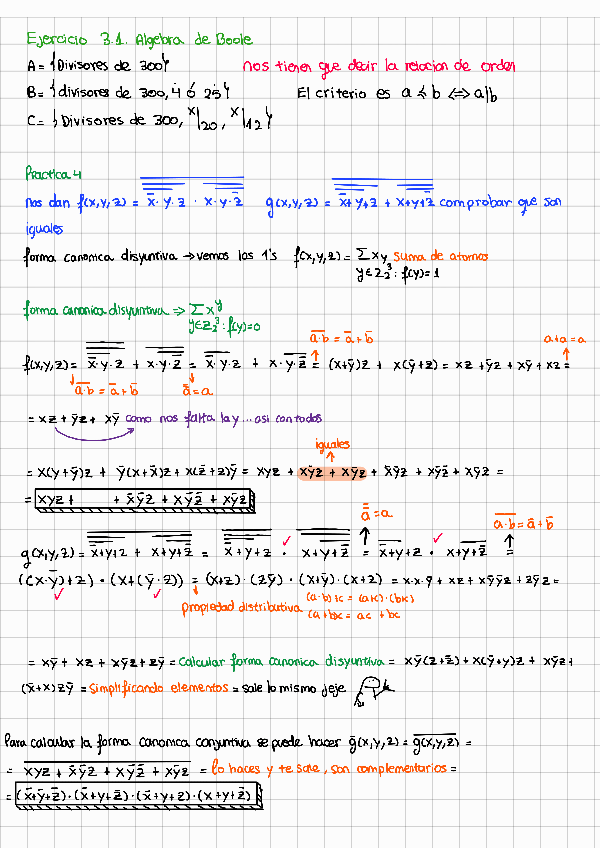 Ejercicio 3.1. Algebra de Boole
A = {Divisores de 300} nos tienen que decir la relacion de orden
B = {divisores de 300, 4 ó 25} El criterio es a ≤ b ⇔ a|b
C = {Divisores de 300, x|20, x|12}
Practica 4
nos dan f(x,y,z) = x̄·y·z · x·y·z̄ g(x,y,z) = x̄+y+z + x+y+z̄ comprobar que son
iguales
forma canonica disyuntiva → vemos los 1's f(x,y,z) = Σ xy suma de atomos
y∈Z₂³ : f(y)=1
forma canonica disyuntiva ⇒ Σ x^y
y∈Z₂³ : f(y)=0
a·b = ā+b̄ a+a = a
f(x,y,z) = x̄·y·z + x·y·z̄ = x̄·y·z + x·y·z̄ = (x+ȳ)z + x(ȳ+z) = xz + ȳz + xȳ + xz =
a·b = ā+b̄ a̿ = a
= xz + ȳz + xȳ como nos falta la y... asi con todos
iguales
= x(y+ȳ)z + ȳ(x+x̄)z + x(z̄+z)ȳ = xyz + xȳz + xȳz + x̄ȳz + xȳz̄ + xȳz =
= xyz + + x̄ȳz + xȳz̄ + xȳz
a̿ = a a·b = ā+b̄
g(x,y,z) = x̄+y+z + x+y+z̄ = x̄+y+z · x+y+z̄ = x̄+y+z · x+y+z̄ =
((x·ȳ)+z) · (x+(ȳ·z)) = (x+z)·(zȳ)·(x+ȳ)·(x+z) = x·x·ȳ + xz + xȳȳz + zȳz =
propiedad distributiva (a·b)+c = (a+c)·(b+c)
(a+b)c = ac + bc
= xȳ + xz + xȳz + zȳ = calcular forma canonica disyuntiva = xȳ(z+z̄) + x(ȳ+y)z + xȳz +
(x̄+x)zȳ = Simplificando elementos = sale lo mismo jeje
Para calcular la forma canonica conjuntiva se puede hacer ḡ(x,y,z) = g(x,y,z) =
= xyz + x̄ȳz + xȳz̄ + xȳz = lo haces y te sale, son complementarios =
= (x̄+ȳ+z̄)·(x̄+y+z̄)·(x̄+y+z)·(x+y+z̄)